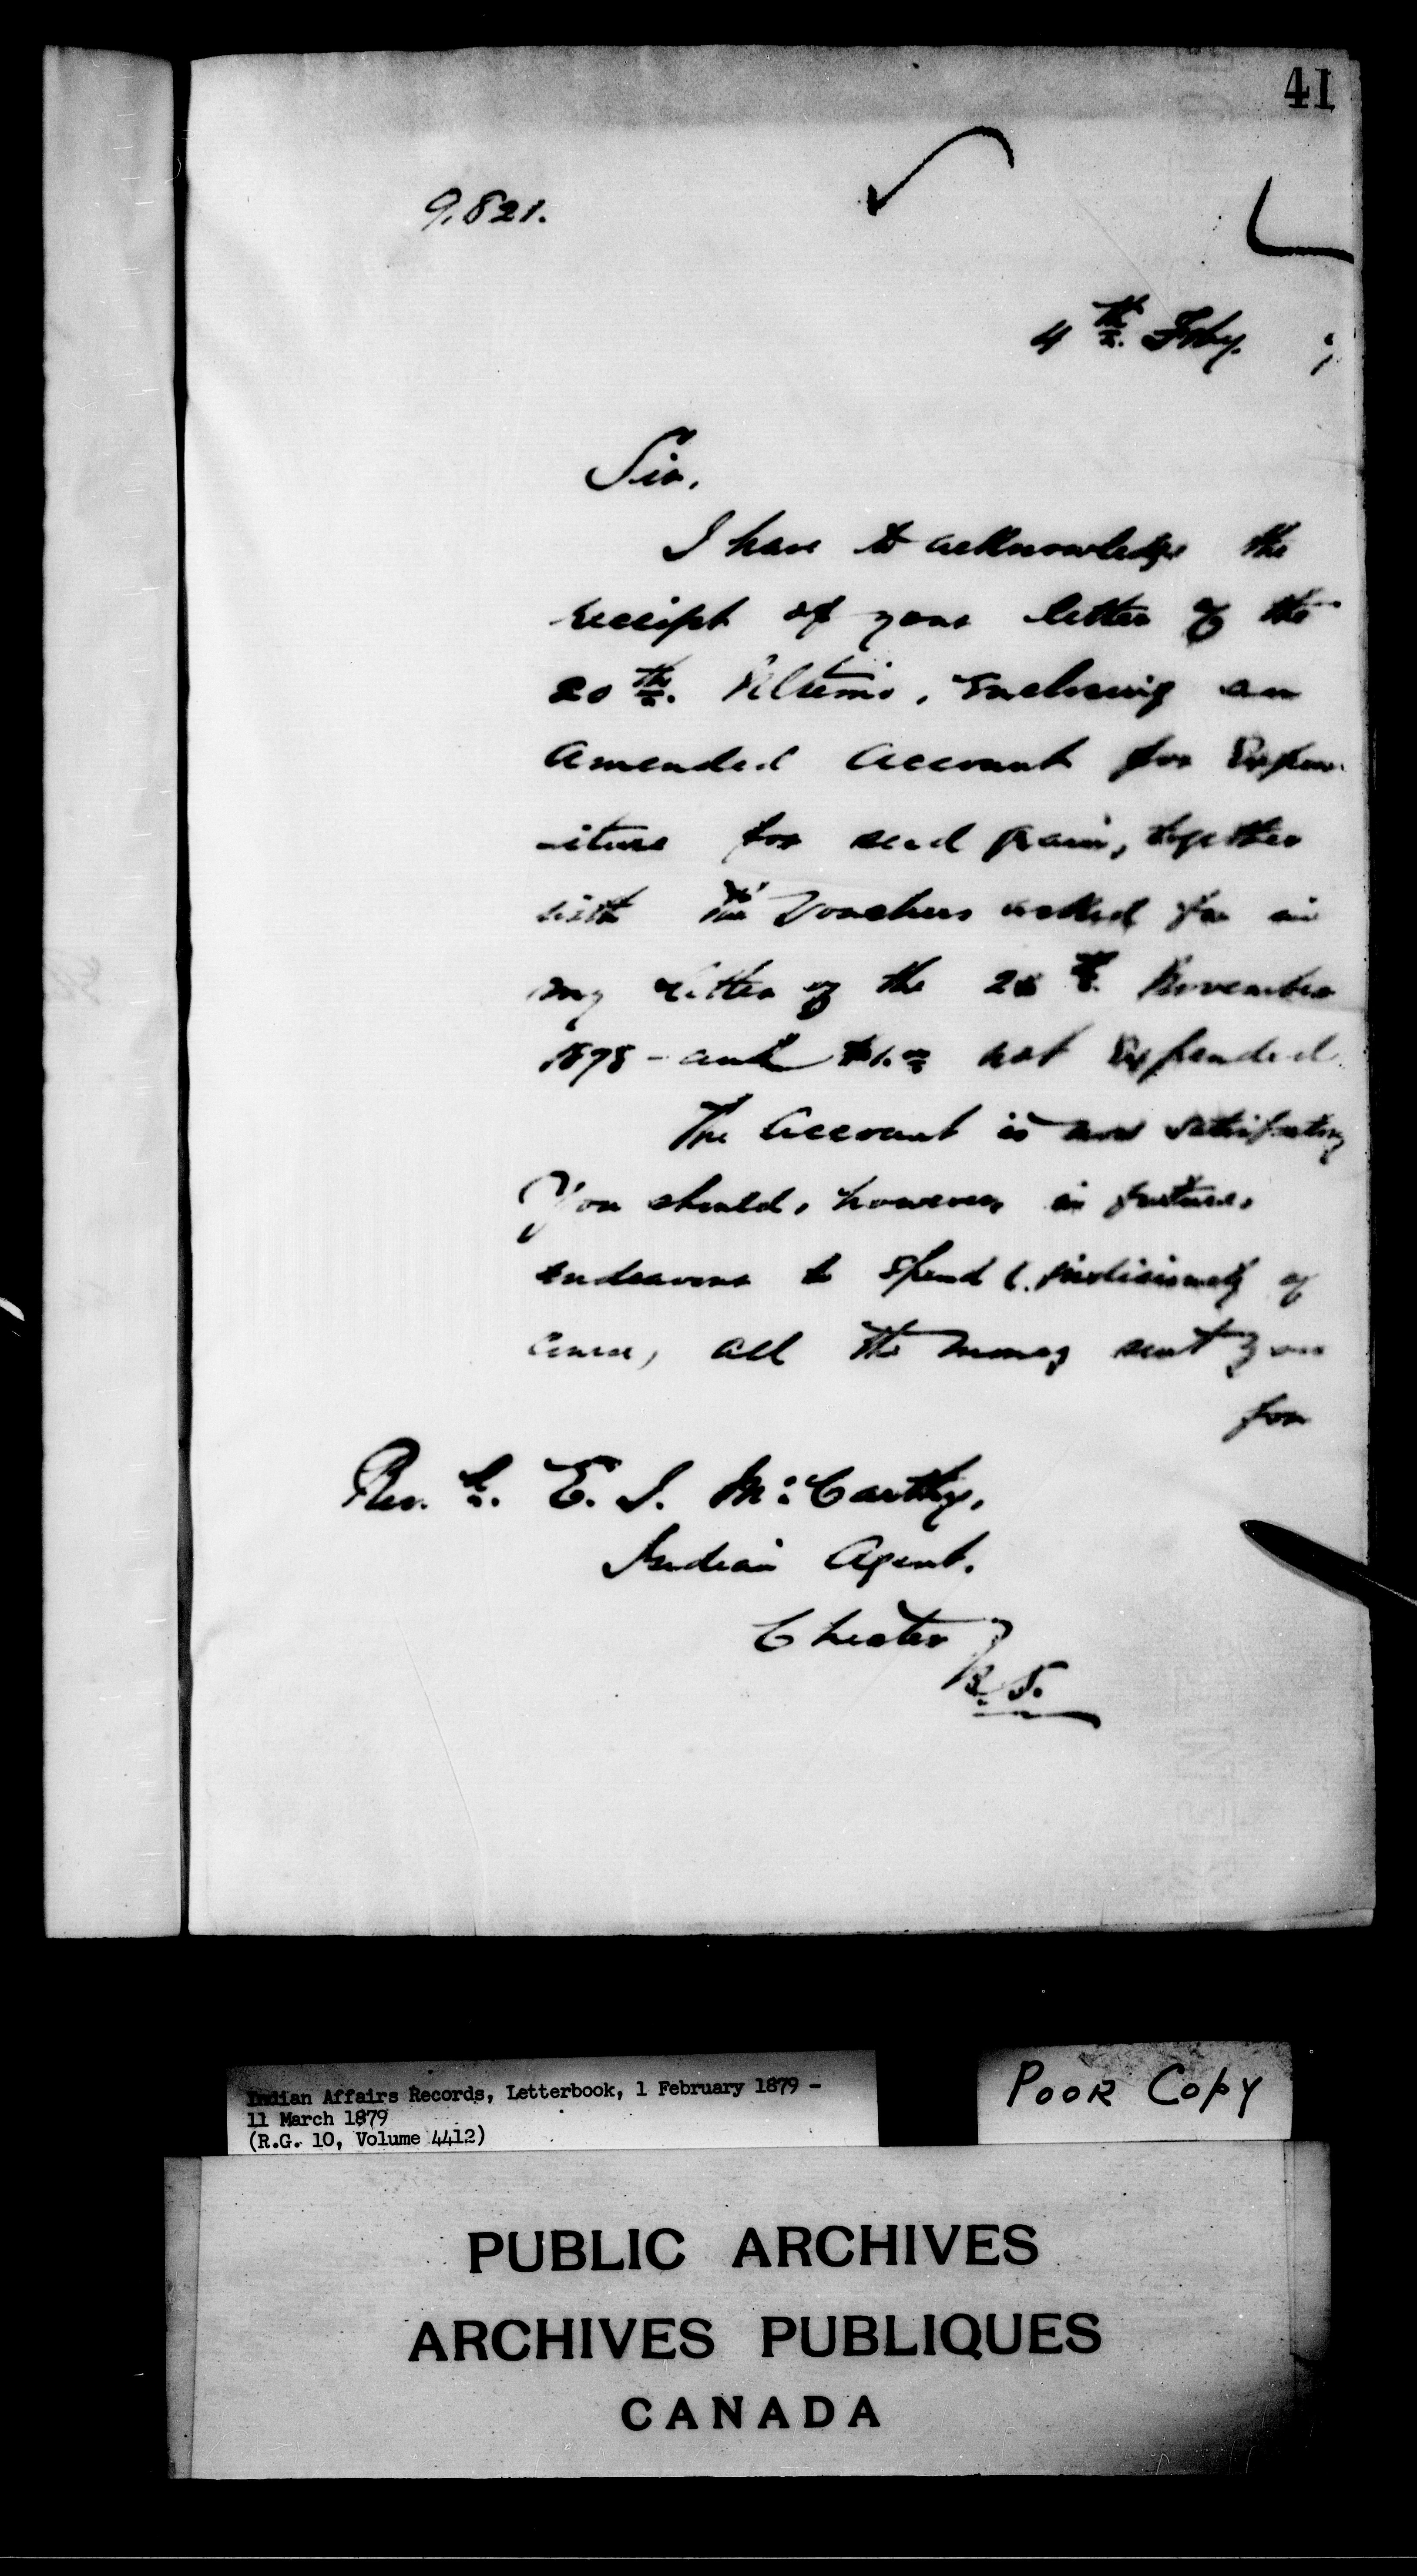 41
9,821.
4th. Feby. 7
Sir,
I have to acknowledge the
receipt of your letter of the
20th. Ultimo, enclosing an
amended account for Expen
-iture for seed grain, together
with the Vouchers asked for in
my letter of the 28th. November
1878 - and $1.00 not Expended
The account is now satisfactory
You should, however, in future,
endeavour to spend (judiciously of
course) all the money sent you
for
Revd. E. J. McCarthy,
Indian Agent.
Chester
N. S.
Indian Affairs Records, Letterbook, 1 February 1879 -
11 March 1879
(R.G. 10, Volume 4412)
POOR COPY
PUBLIC ARCHIVES
ARCHIVES PUBLIQUES
CANADA